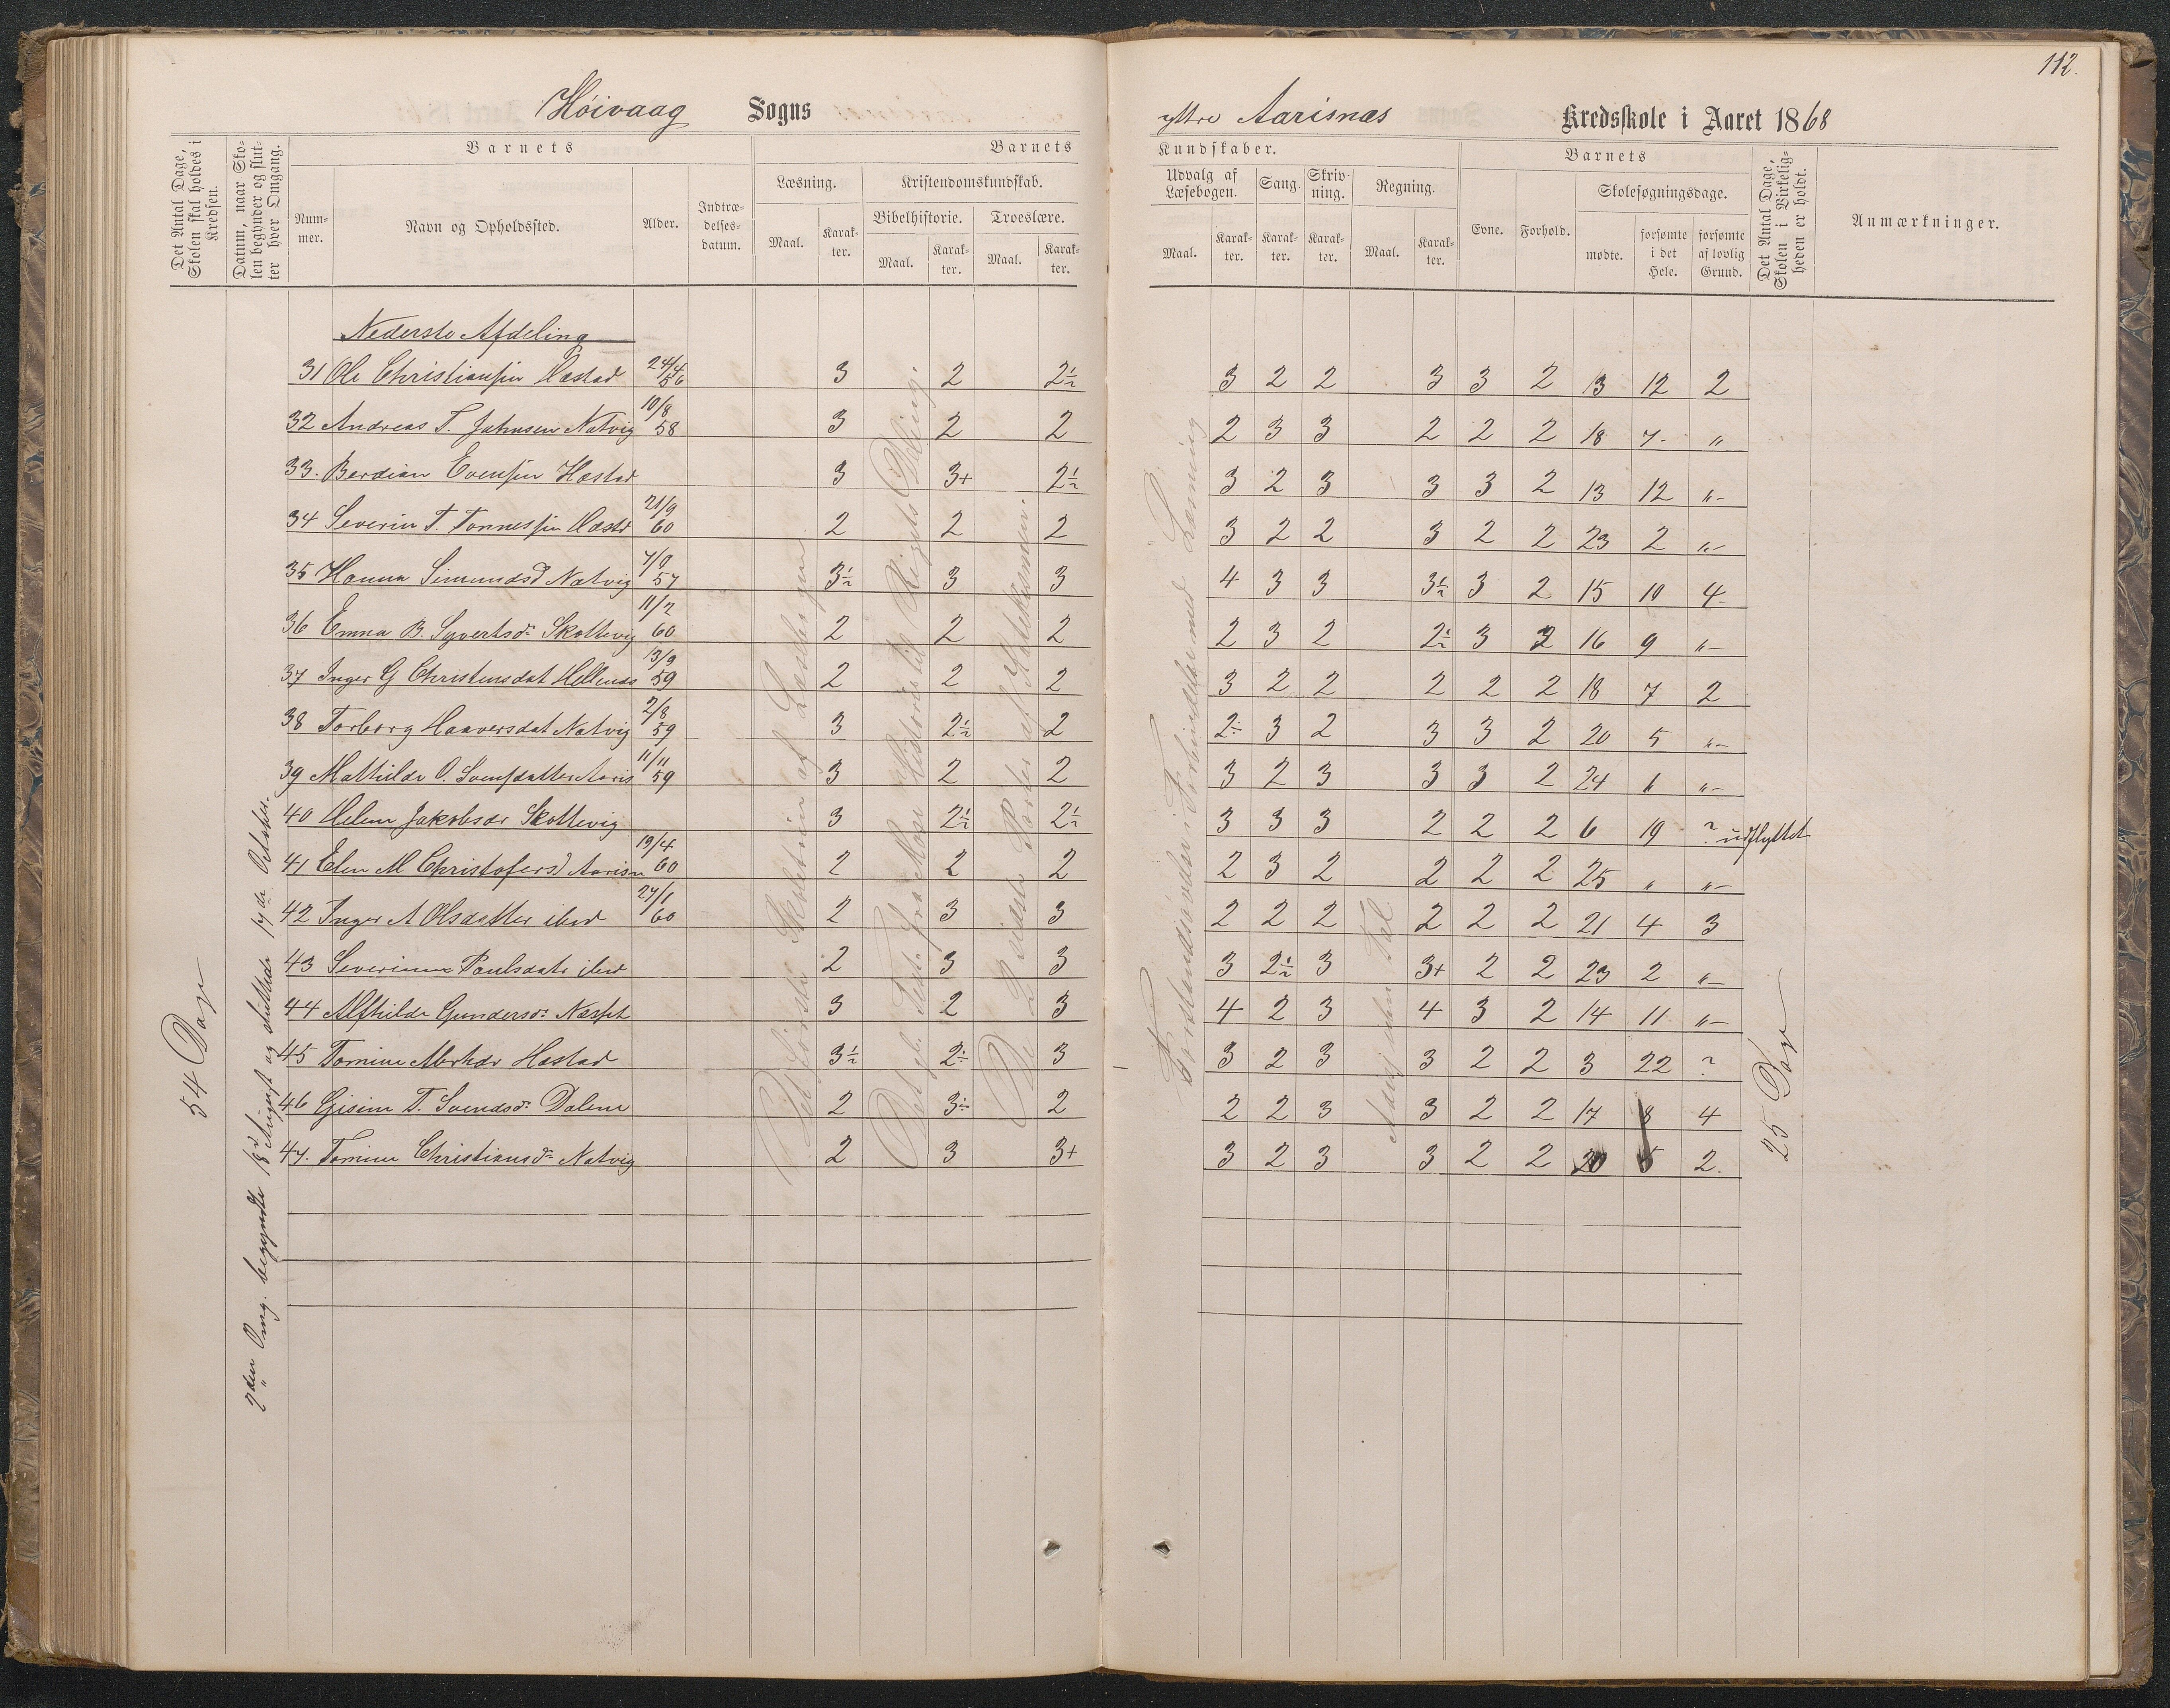 112.
Höivaag Sogns
yttre Aarisnæs Kredsskole i Aaret 1868
Det Antal Dage, Skolen skal holdes i Kredsen.
Datum, naar Skolen begynder og slutter hver Omgang.
Barnets
Nummer.
Navn og Opholdssted.
Alder.
Indtrædelsesdatum.
Barnets
Læsning.
Maal.
Karakter.
Kristendomskundskab.
Bibelhistorie.
Maal.
Karakter.
Troeslære.
Maal.
Karakter.
Kundskaber.
Udvalg af Læsebogen.
Maal.
Karakter.
Sang.
Karakter.
Skrivning.
Karakter.
Regning.
Maal.
Karakter.
Barnets
Evne.
Forhold.
Skolesøgningsdage.
mødte.
forsømte i det Hele.
forsømte af lovlig Grund.
Det Antal Dage, Skolen i Virkeligheden er holdt.
Anmærkninger.
54 Dage
2den Omg. begyndte 18d August og sluttede 17de Oktober.
Nederste Afdeling
31 Ole Christiansen Hæstad 24/4 56 3 2 2½ 3 2 2 3 3 2 13 12 2
32 Andreas T. Jahnsen Natvig 10/8 58 3 2 2 2 3 3 2 2 2 18 7 "
33. Berdian Evensen Hæstad 3 3+ 2½ 3 2 3 3 3 2 13 12 "
34 Severin T. Tonnessen Hæstd 21/9 60 2 2 2 3 2 2 3 2 2 23 2 "
35 Hanna Simundsd Natvig 7/9 57 3½ 3 3 4 3 3 3½ 3 2 15 10 4
36 Emna B. Syvertsdr Skottevig 11/2 60 2 2 2 2 3 2 2½ 3 2 16 9 "
37 Inger G Christensdat 13/9 59 2 2 2 3 2 2 2 2 2 18 7 2
38 Torborg Haaversdat Natvig 2/8 59 3 2½ 2 2÷ 3 2 3 3 2 20 5 "
39 Mathilde O. Svensdatter Aaris 11/11 59 3 2 2 3 2 3 3 3 2 24 1 "
40 Helene Jakobsdr Skottevig 3 2½ 2½ 3 3 3 2 2 2 6 19 ? udflyttet
41 Elen M Christofersd Aarisn 19/4 60 2 2 2 2 3 2 2 2 2 25 " "
42 Inger A Olsdatter ibid 27/1 60 2 3 3 2 2 2 2 2 2 21 4 3
43 Severine Paulsdatr ibid 2 3 3 3 2½ 3 3+ 2 2 23 2 "
44 Alfhilde Gundersdr Næsset 3 2 3 4 2 3 4 3 2 14 11 "
45 Tomine Hæstad 3½ 2÷ 3 3 2 3 3 2 2 3 22 ?
46 Gisine T. Svendsdr Dalene 2 3÷ 2 2 2 3 3 2 2 17 8 4
47. Tomine Christiansdr Natvig 2 3 3+ 3 2 3 3 2 2 20 5 2.
Det förste Skoletrin af Læsebogen
Det gl. Test. fra Mose Historie til Rigets Deling.
De 2 sidste Parter af Katekismen.
Forstandsøvelser i Forbindelse med Læsning
25 Dage